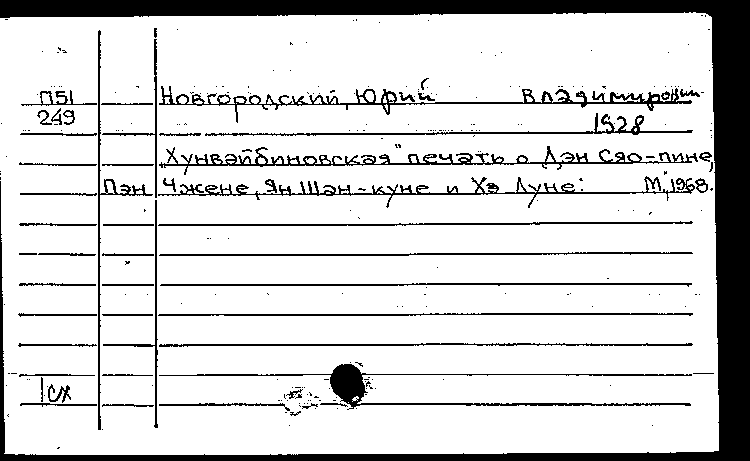 П51 Новгородский, Юрий Владимирович
249 1928
„Хунвэйбиновская" печать о Дэн Сяо-пине,
Пэн Чжене, Ян Шан-куне и Хэ Луне: М., 1968.
1сх